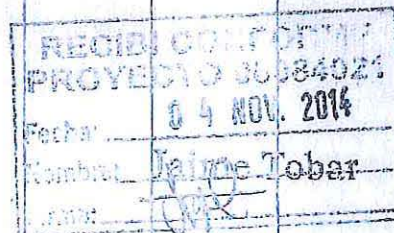 RECIBI CONFORME
PROYECTO 00084021
Fecha: 04 NOV. 2014
Nombre: Jaime Tobar
Firma: